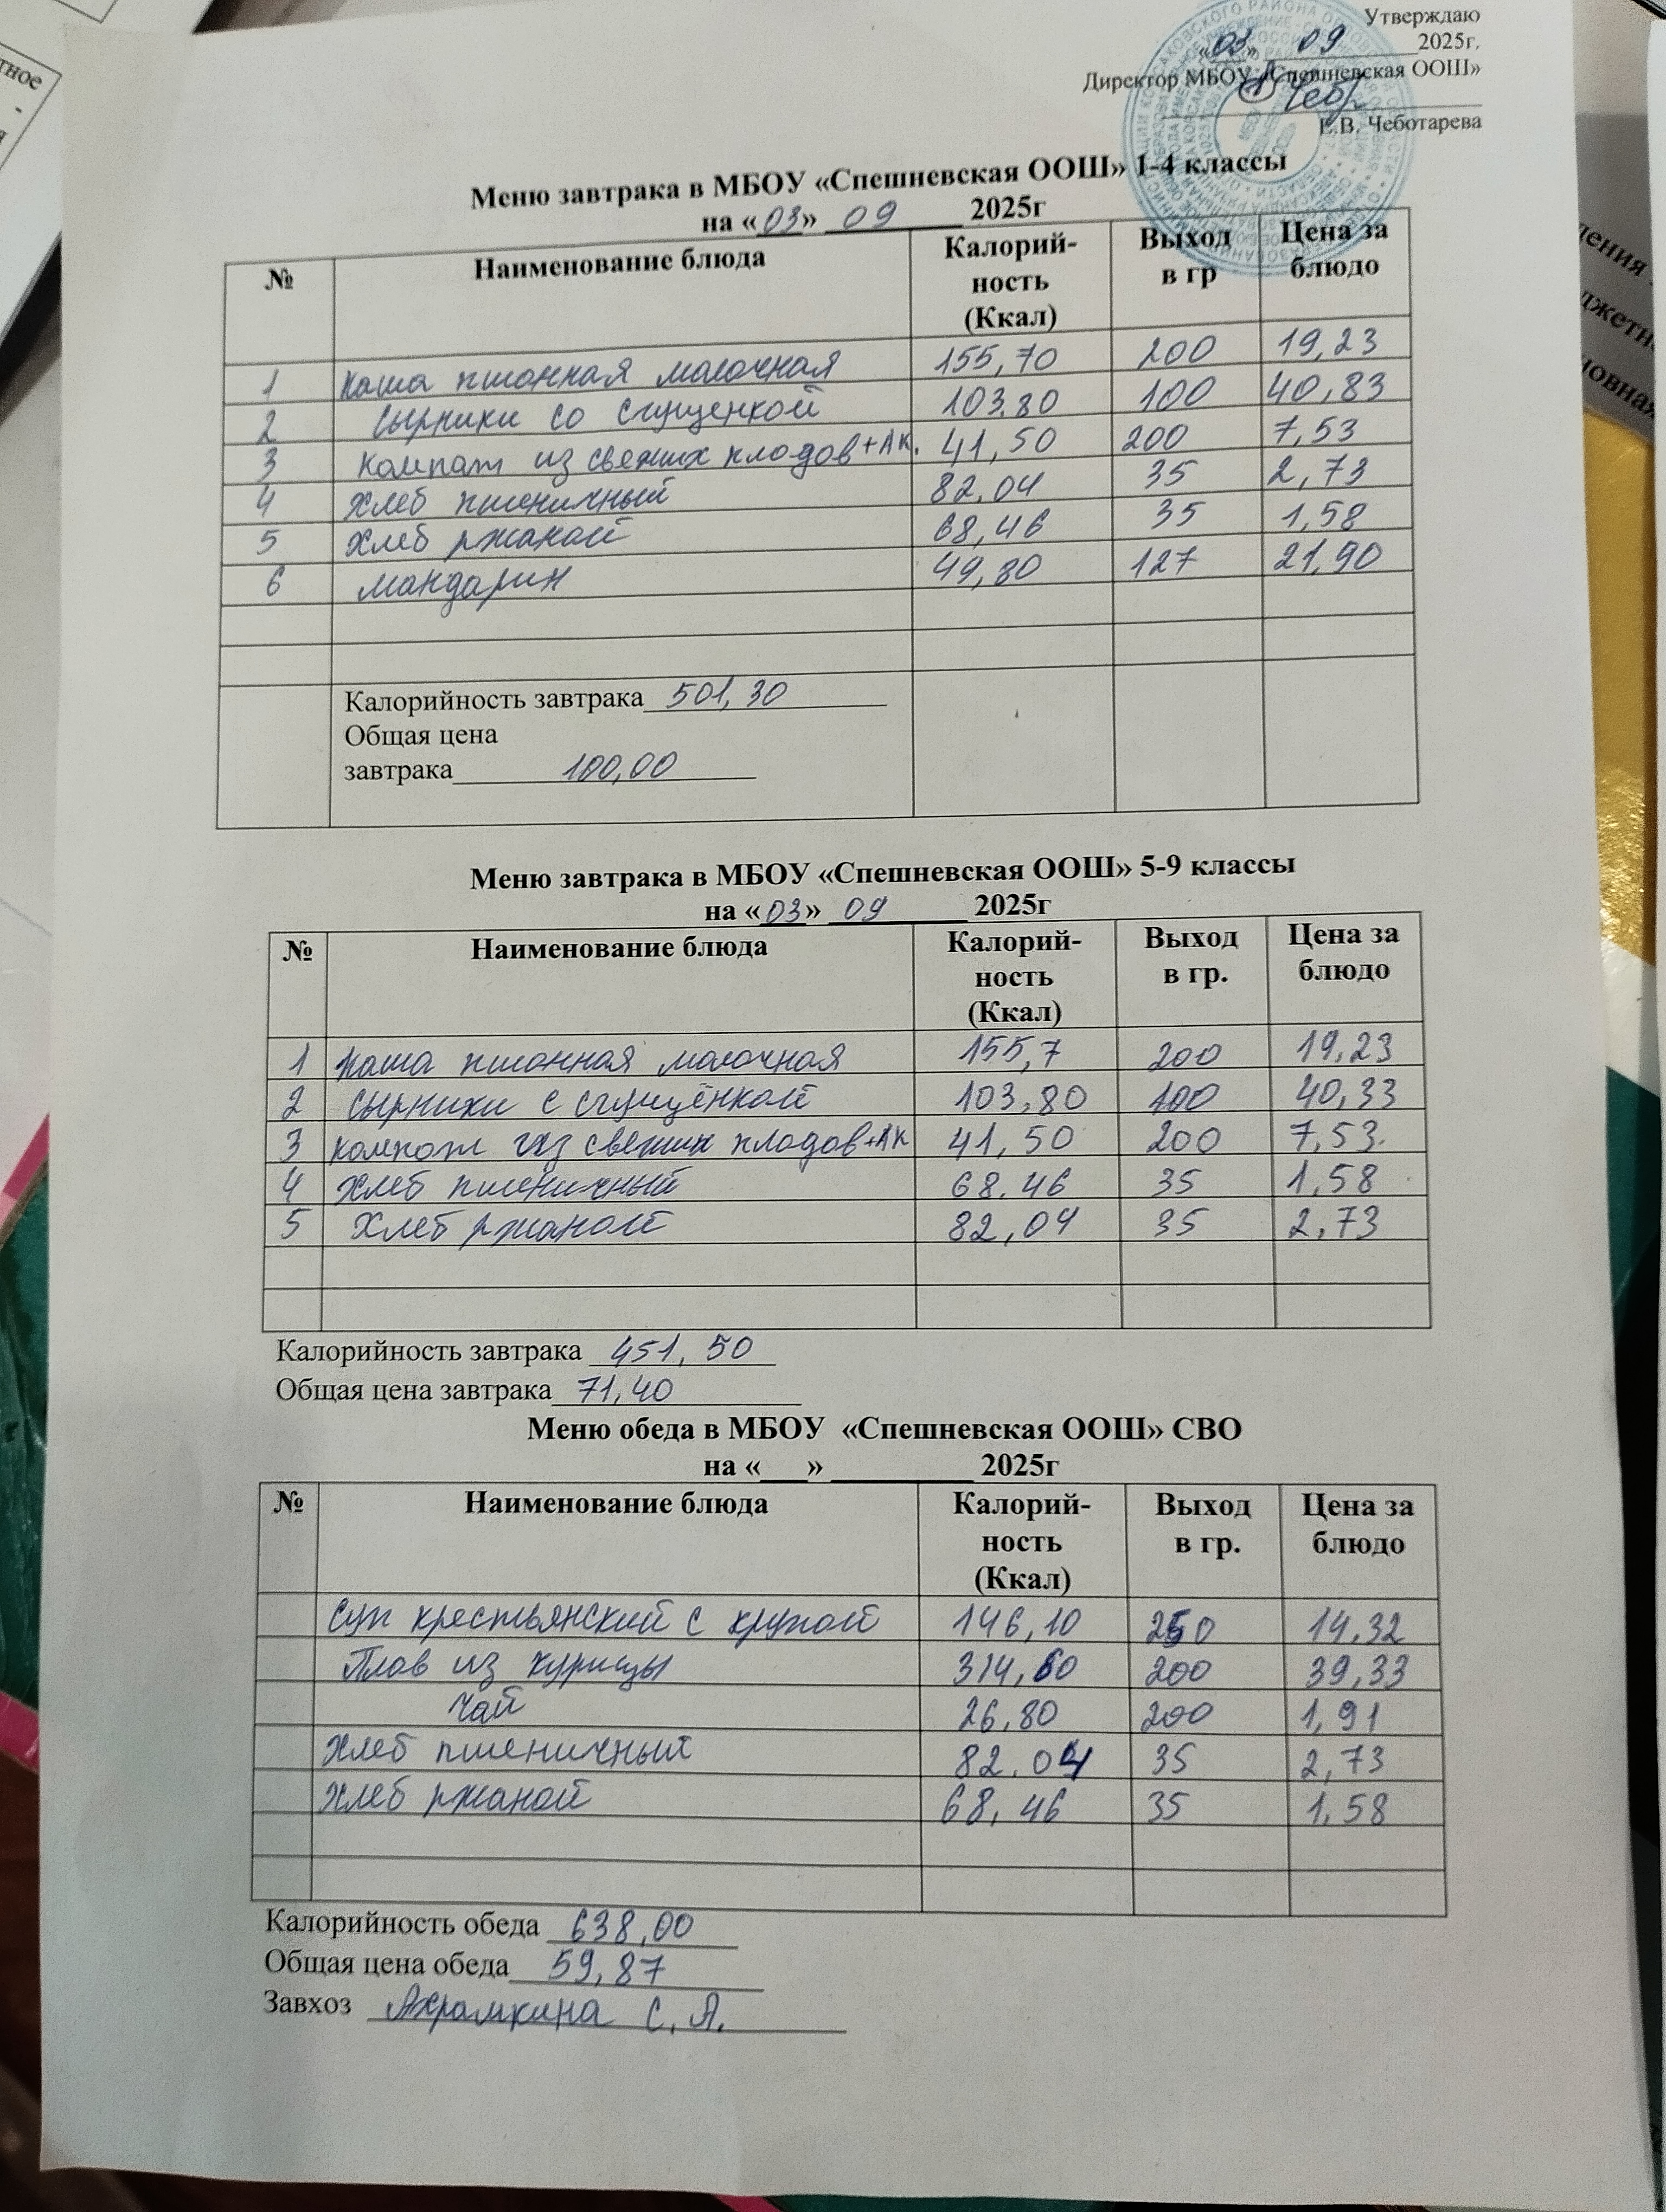 тное
Утверждаю
«03» 09 2025г.
Директор МБОУ «Спешневская ООШ»
Е.В. Чеботарева
Меню завтрака в МБОУ «Спешневская ООШ» 1-4 классы
на «03» 09 2025г
№ Наименование блюда Калорий-ность (Ккал) Выход в гр Цена за блюдо
1 Каша пшонная молочная 155,70 200 19,23
2 Сырники со сгущенкой 103.80 100 40,83
3 Компот из свежих плодов+АК. 41,50 200 7,53
4 Хлеб пшеничный 82.04 35 2,73
5 Хлеб ржаной 68,46 35 1,58
6 мандарин 49,80 127 21,90
Калорийность завтрака 501,30
Общая цена
завтрака 100,00
Меню завтрака в МБОУ «Спешневская ООШ» 5-9 классы
на «03» 09 2025г
№ Наименование блюда Калорий-ность (Ккал) Выход в гр. Цена за блюдо
1 Каша пшонная молочная 155,7 200 19,23
2 Сырники с сгущёнкой 103,80 100 40,33
3 Компот из свежих плодов+АК 41,50 200 7,53
4 Хлеб пшеничный 68.46 35 1,58
5 Хлеб ржаной 82,04 35 2,73
Калорийность завтрака 451,50
Общая цена завтрака 71,40
Меню обеда в МБОУ «Спешневская ООШ» СВО
на «___» 2025г
№ Наименование блюда Калорий-ность (Ккал) Выход в гр. Цена за блюдо
Суп крестьянский с крупой 146,10 250 14,32
Плов из курицы 314,60 200 39,33
Чай 26,80 200 1,91
Хлеб пшеничный 82.04 35 2,73
Хлеб ржаной 68,46 35 1,58
Калорийность обеда 638,00
Общая цена обеда 59,87
Завхоз Ахрамкина С.А.